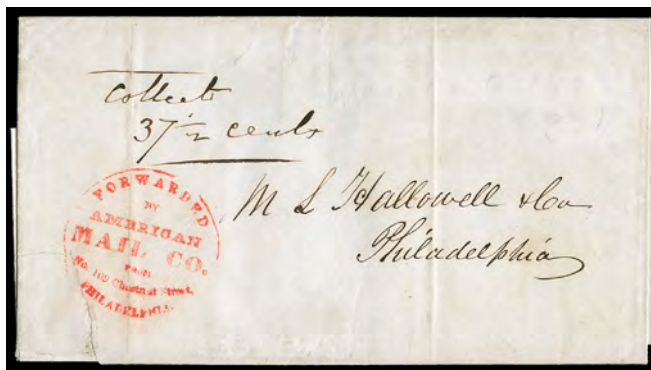 Collect
37 1/2 cents
FORWARDED
BY
AMERICAN
MAIL CO.
FROM
No. 109 Chestnut Street,
PHILADELPHIA.
M L Hallowell & Co
Philadelphia